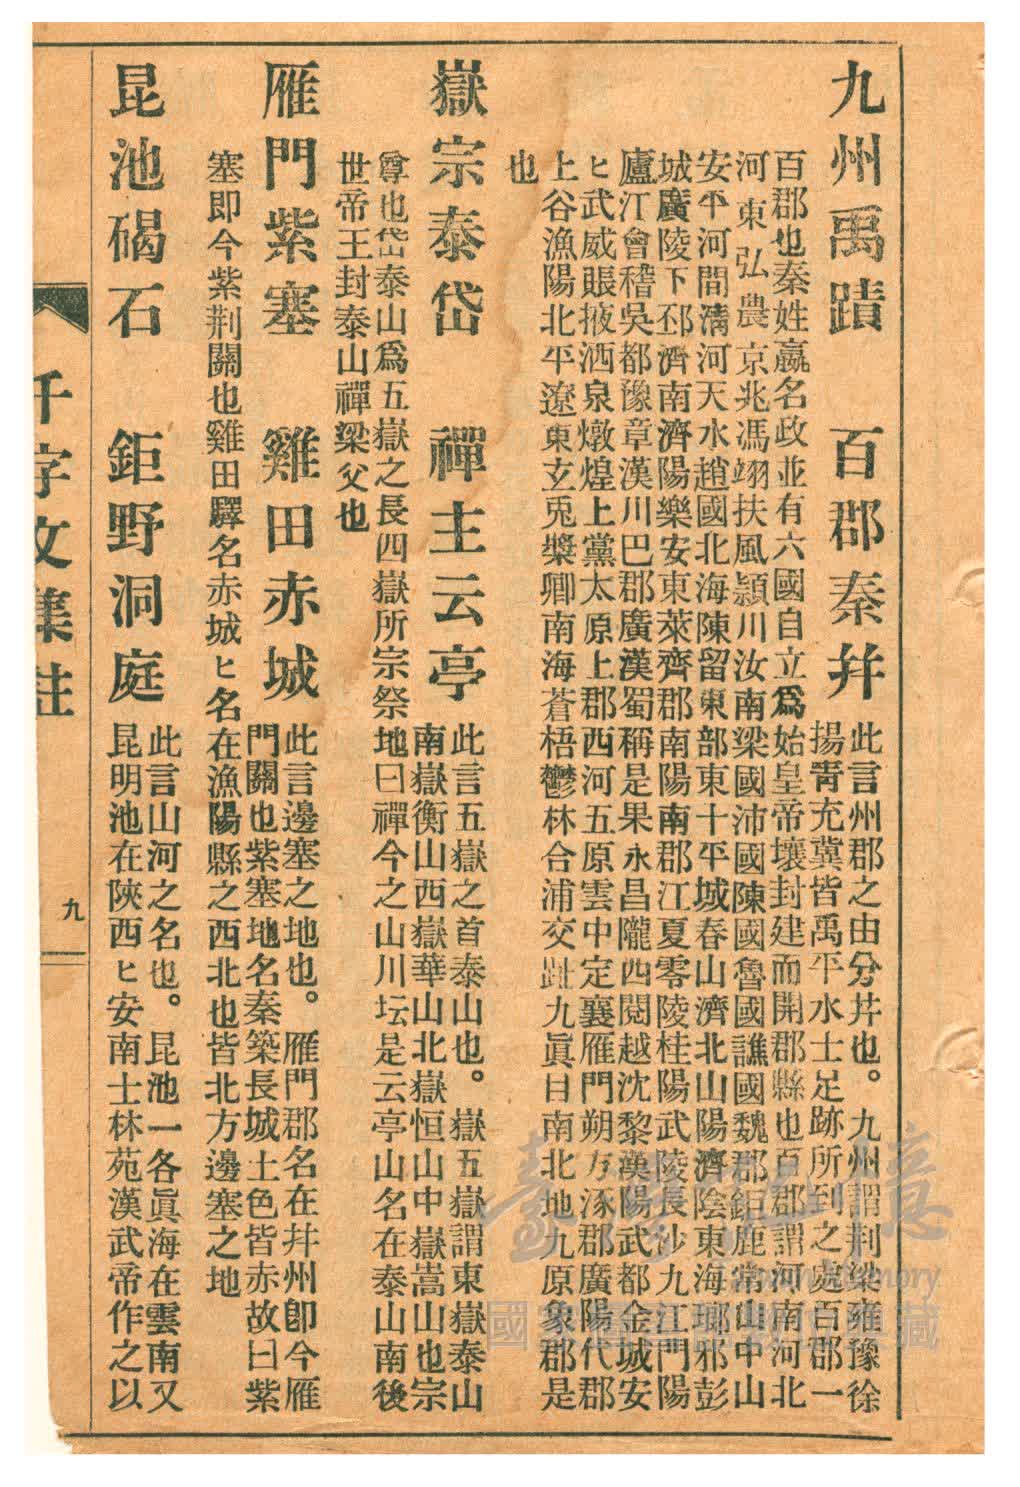 九州禹蹟　百郡秦幷
此言州郡之由分幷也。九州謂荆梁雍豫徐
揚靑充冀皆禹平水士足跡所到之處百郡一
百郡也秦姓嬴名政並有六國自立爲始皇帝壞封建而開郡縣也百郡謂河南河北
河東弘農京兆馮翊扶風潁川汝南梁國沛國陳國魯國譙國魏郡鉅鹿常山中山
安平河間淸河天水趙國北海陳留東部東十平城春山濟北山陽濟陰東海瑯邪彭
城廣陵下邳濟南濟陽樂安東萊齊郡南陽南郡江夏零陵桂陽武陵長沙九江門陽
廬江會稽吳都豫章漢川巴郡廣漢蜀稱是果永昌隴四閱越沈黎漢陽武都金城安
ヒ武威賬掖洒泉燉煌上黨太原上郡西河五原雲中定襄雁門朔方涿郡廣陽代郡
上谷漁陽北平遼東玄兎槳卿南海蒼梧鬱林合浦交趾九眞日南北地九原象郡是
也
嶽宗泰岱　禪主云亭
此言五嶽之首泰山也。嶽五嶽謂東嶽泰山
南嶽衡山西嶽華山北嶽恒山中嶽嵩山也宗
尊也岱泰山爲五嶽之長四嶽所宗祭地曰禪今之山川坛是云亭山名在泰山南後
世帝王封泰山禪梁父也
雁門紫塞　雞田赤城
此言邊塞之地也。雁門郡名在幷州卽今雁
門關也紫塞地名秦築長城土色皆赤故曰紫
塞即今紫荆關也雞田驛名赤城ヒ名在漁陽縣之西北也皆北方邊塞之地
昆池碣石　鉅野洞庭
此言山河之名也。昆池一各眞海在雲南又
昆明池在陝西ヒ安南士林苑漢武帝作之以
千字文集註
九
臺灣記憶
Taiwan Memory
國家圖書館數位典藏